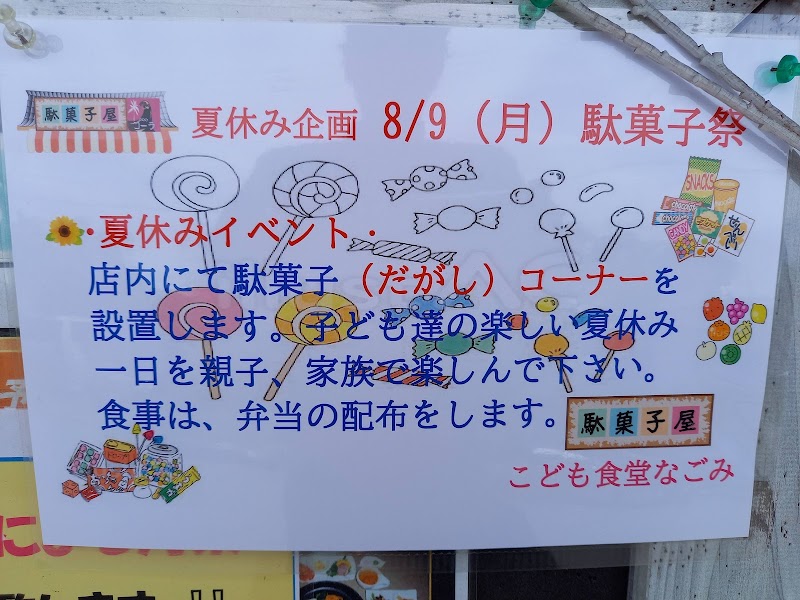 駄菓子屋
コーナー
夏休み企画 8/9（月）駄菓子祭
SNACKS
CANDY
せんべい
・夏休みイベント・
店内にて駄菓子（だがし）コーナーを
設置します。子ども達の楽しい夏休み
一日を親子、家族で楽しんで下さい。
食事は、弁当の配布をします。
駄菓子屋
こども食堂なごみ